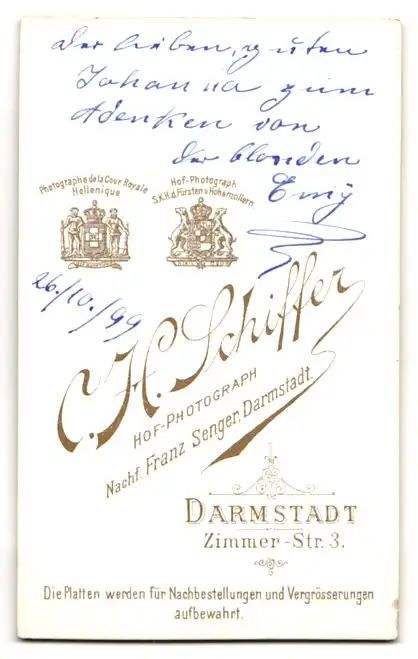 Der lieben, guten
Johanna zum
Adenken von
der blonden
Emy
Photographe de la Cour Royale
Hellenique
Hof-Photograph
S.K.H.d.Fürsten v. Hohenzollern.
26./10./99
C. H. Schiffer
HOF-PHOTOGRAPH
Nachf. Franz Senger, Darmstadt.
DARMSTADT
Zimmer-Str. 3.
Die Platten werden für Nachbestellungen und Vergrösserungen
aufbewahrt.